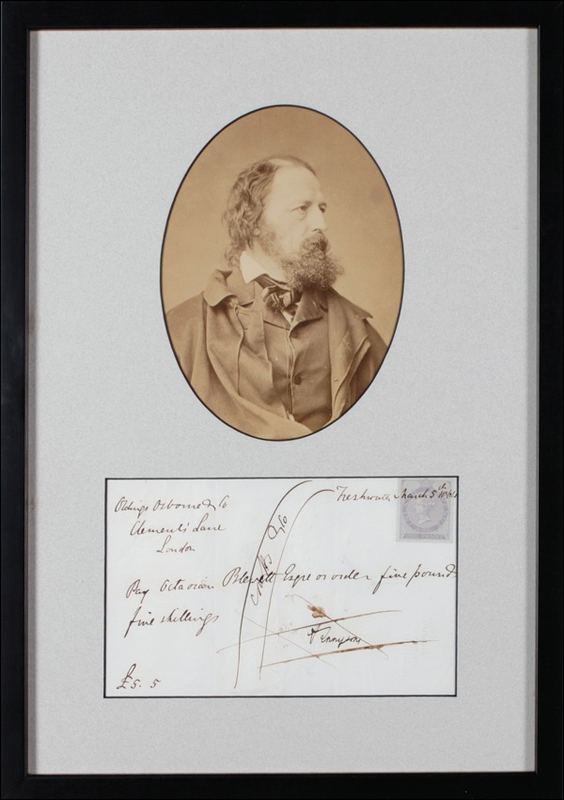 Oldings Osborne & Co
Clement's Lane
London
Freshwater March 5th
Pay Octavian Blewitt Esqre or order five pounds
five shillings
& Co
A Tennyson
£5. 5